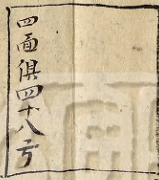 四面俱四十八弓